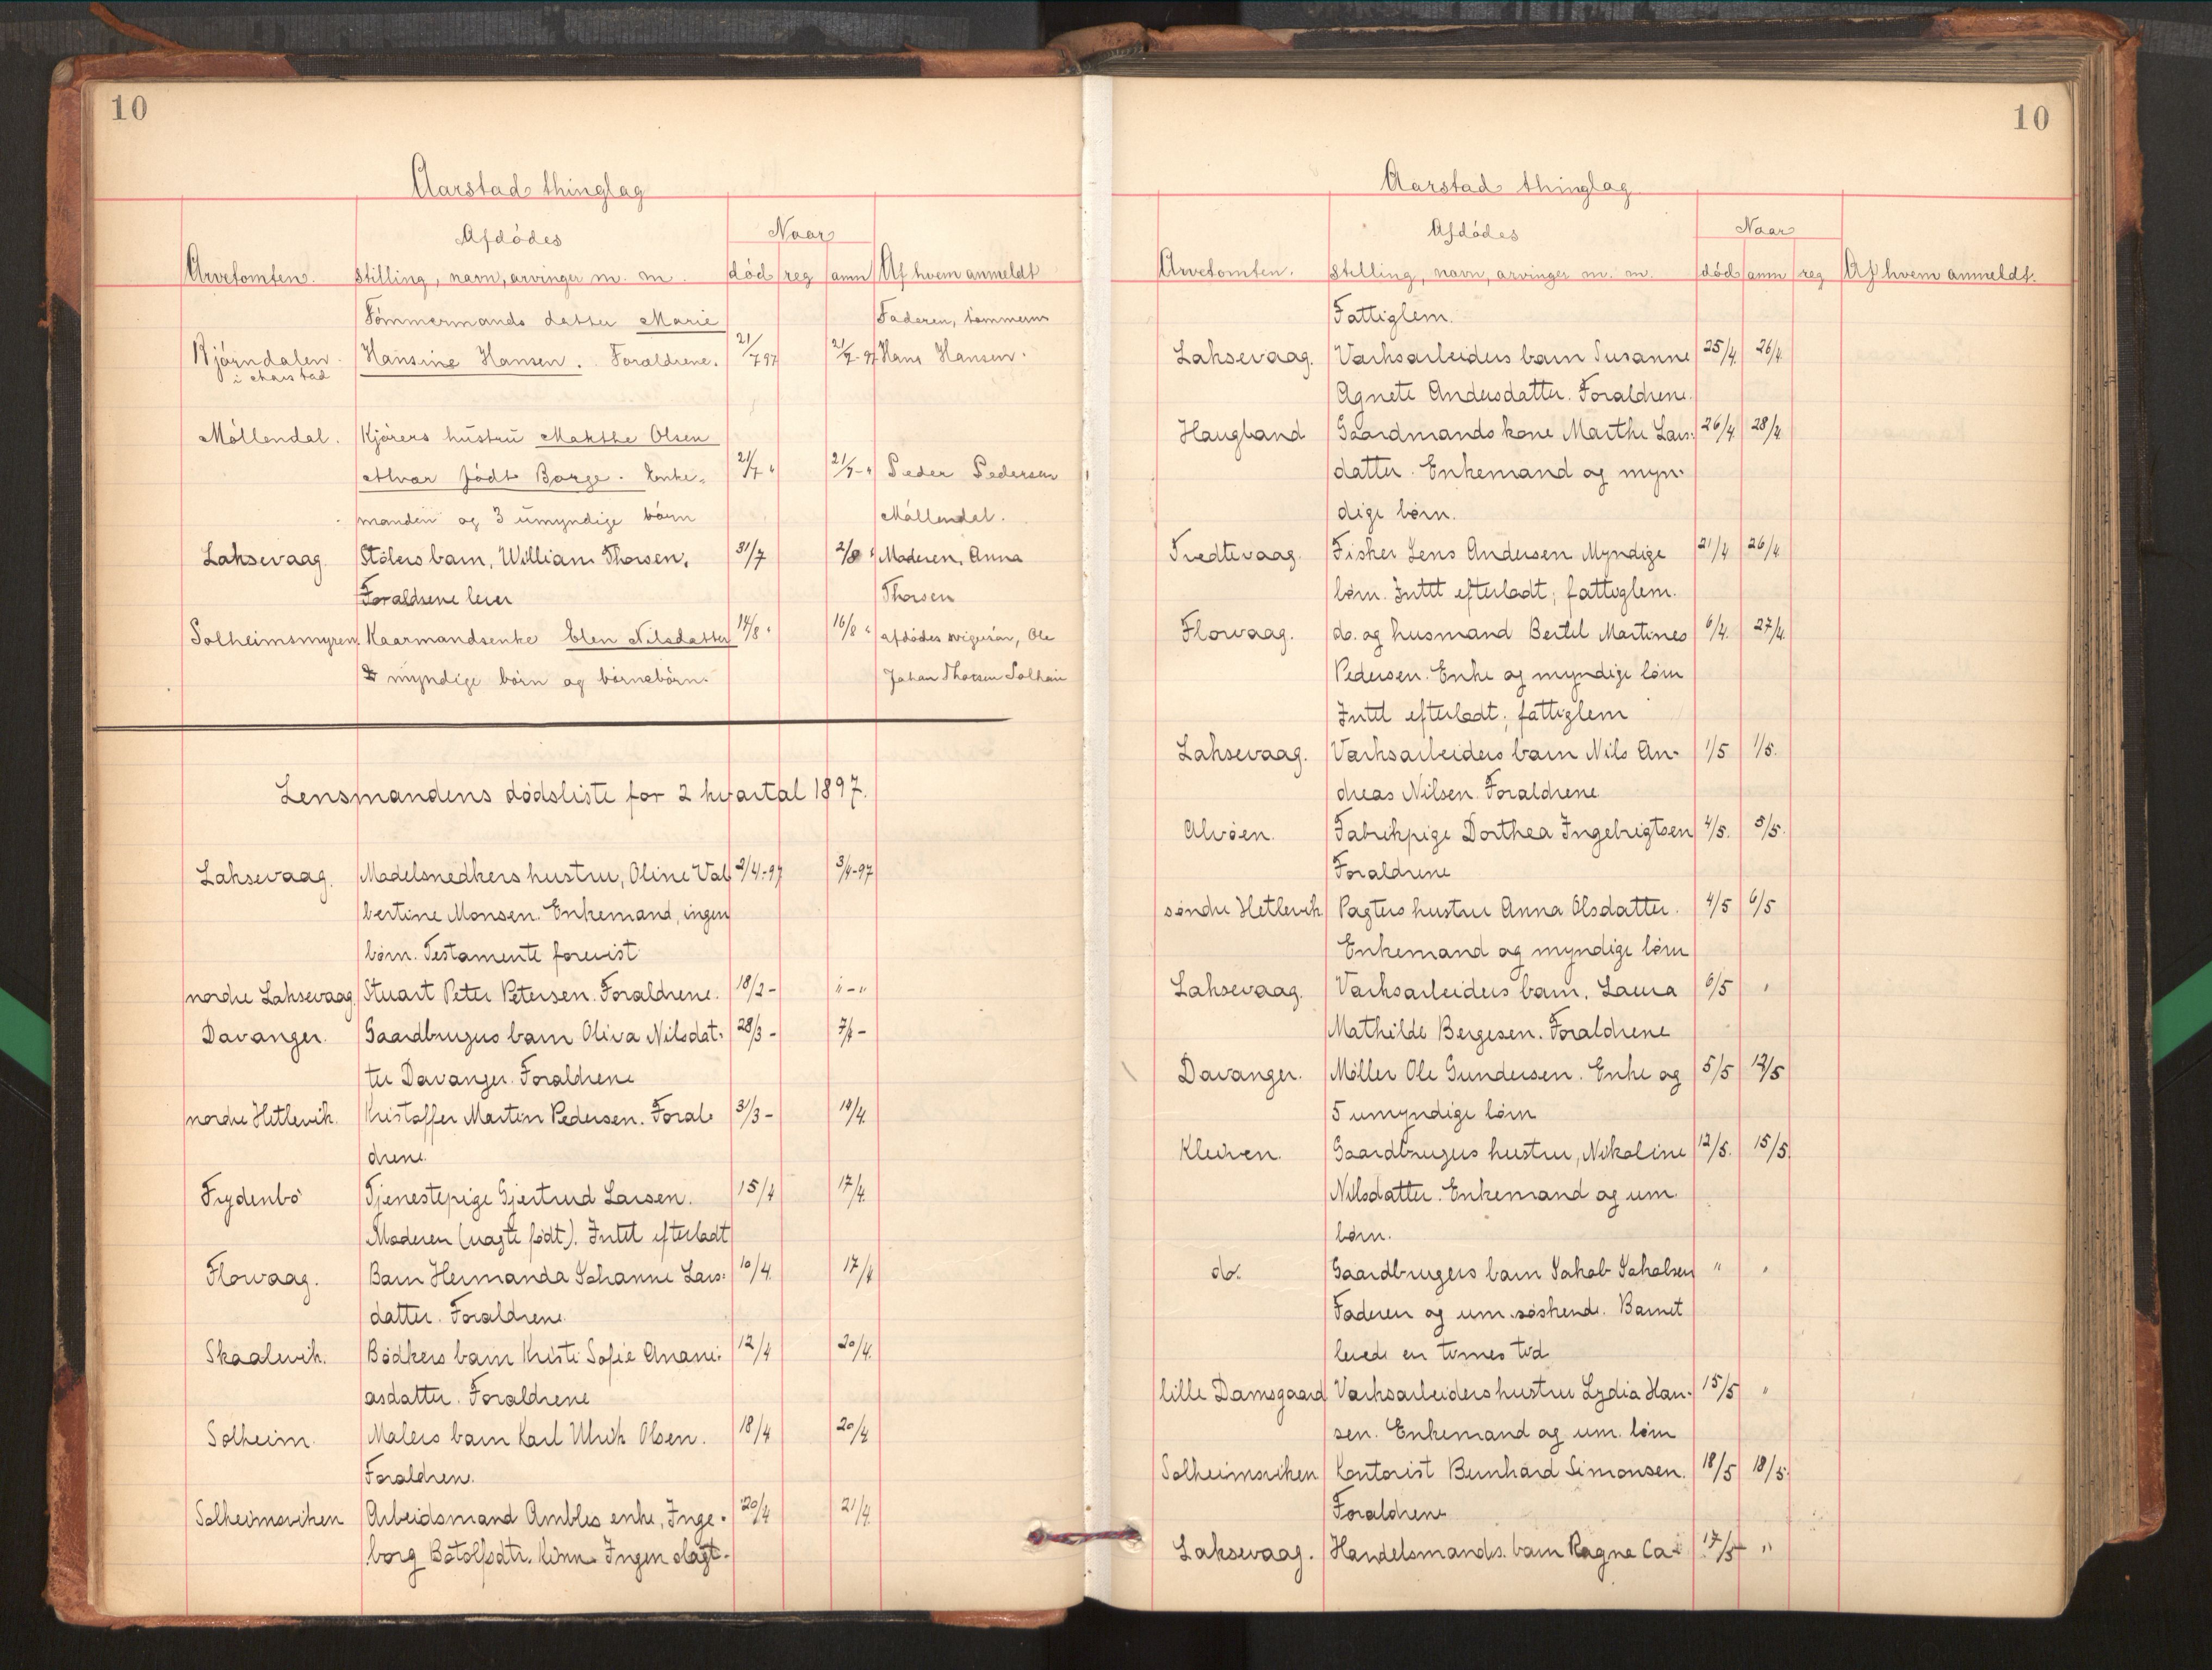 10
Aarstad thinglag
Afdödes
Naar
Arvetomten. Stilling, navn, arvinger m. m. död reg anm Af hvem anmeldt
Tömmermands datter Marie Faderen, tömmerm
Bjørndalen. Hansine Hansen. Forældrene. 21/7 97 21/7-97 Hans Hansen.
i Aarstad
Möllendal. Kjörers hustru Makthe Olsen
Alvær födt Borge. Enke- 21/7 " 21/7-" Peder Pedersen
manden og 3 umyndige börn Möllendal.
Laksevaag. Stölers barn, William Thorsen. 31/7 2/8 " Moderen, Anna
Forældrene lever Thorsen
Solheimsmyren. Kaarmandsenke Elen Nilsdatter 14/8 " 16/8 " afdödes svigersön, Ole
myndige börn og börnebörn. Johan Thorsen Solheim
Lensmandens dödsliste for 2 kvartal 1897.
Laksevaag. Modelsnedkers hustru, Oline Val 2/4-97 3/4-97
bertine Monsen. Enkemand, ingen
børn. Testamente forevist
nordre Laksevaag. Stuart Peter Petersen. Forældrene. 18/2- "-"
Davanger. Gaardbrugers barn Oliva Nilsdat- 28/3- 7/4-
ter Davanger. Forældrene
nordre Hetlevik. Kristoffer Martin Pedersen. Foræl- 31/3- 14/4.
drene.
Frydenbö Tjenestepige Gjertrud Larsen. 15/4 17/4.
Moderen (uægte født). Intet efterladt
Florvaag. Barn Hermanda Johanne Lars- 10/4. 17/4
datter. Forældrene.
Skaalevik. Bödkers barn Kristi Sofie Anani- 12/4 20/4.
asdatter. Forældrene
Solheim. Malers barn Karl Ulrik Olsen. 18/4 20/4
Forældren.
Solheimsviken Arbeidsmand Ambles enke, Inge- 20/4 21/4.
borg Botolfsdtr. Ingen slægt-
10
Aarstad thinglag
Afdödes
Naar
Arvetomten. Stilling, navn, arvinger m. m. död anm reg Af hvem anmeldt.
Fattiglem.
Laksevaag. Værksarbeiders barn Susanne 25/4. 26/4.
Agnete Andersdatter. Forældrene.
Haugland Gaardmands kone Marthe Lars- 26/4 28/4
datter. Enkemand og myn-
dige børn.
Tredtevaag. Fisker Jens Andersen Myndige 21/4 26/4
børn. Intet efterladt; fattiglem.
Florvaag. do. og husmand Bertel Martines 6/4. 27/4.
Pedersen. Enke og myndige børn
Intet efterladt; fattiglem
Laksevaag. Værksarbeiders barn Nils An- 1/5 1/5.
dreas Nilsen. Forældrene
Alvöen. Fabrikpige Dorthea Ingebrigtsen 4/5. 5/5.
Forældrene
søndre Hetlevik Pagters hustru Anna Olsdatter. 4/5 6/5
Enkemand og myndige børn
Laksevaag. Værksarbeiders barn. Laura 6/5 "
Mathilde Bergesen. Forældrene
Davanger. Möller Ole Gundersen. Enke og 5/5 12/5
5 umyndige børn
Kleiven. Gaardbrugers hustru, Nikoline 12/5. 15/5.
Nilsdatter. Enkemand og um.
børn.
do. Gaardbrugers barn Jakob Jakobsen " "
Faderen og um. søskende. Barnet
levede en times tid
lille Damsgaard Værksarbeiders hustru Lydia Han- 15/5 "
sen. Enkemand og um. børn
Solheimsviken Kontorist Bernhard Simonsen. 18/5 18/5.
Forældrene
Laksevaag. Handelsmands barn Ragna Ca- 17/5 "